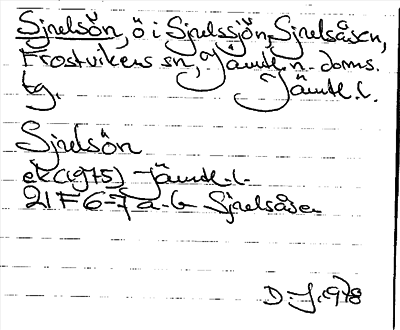 Sjnelsön, ö i Sjnelssjön, Sjnelsåsen,
Frostvikens sn, Jämtl. n. doms.
tg. Jämtl. l.
Sjnelsön
ek (1975) Jämtl. l.
21 F 6-7 a-b Sjnelsåsen
D. J. 1978